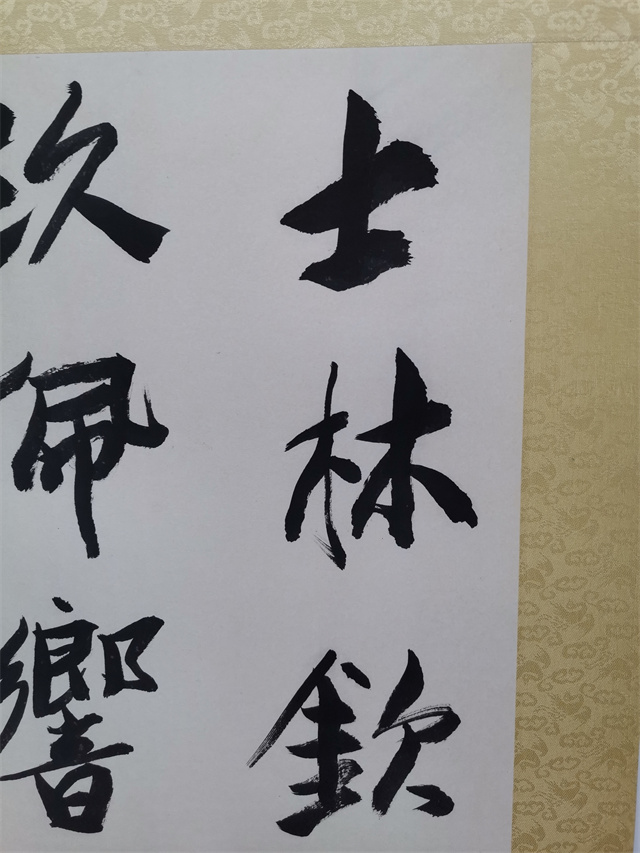 士林欽
佩響